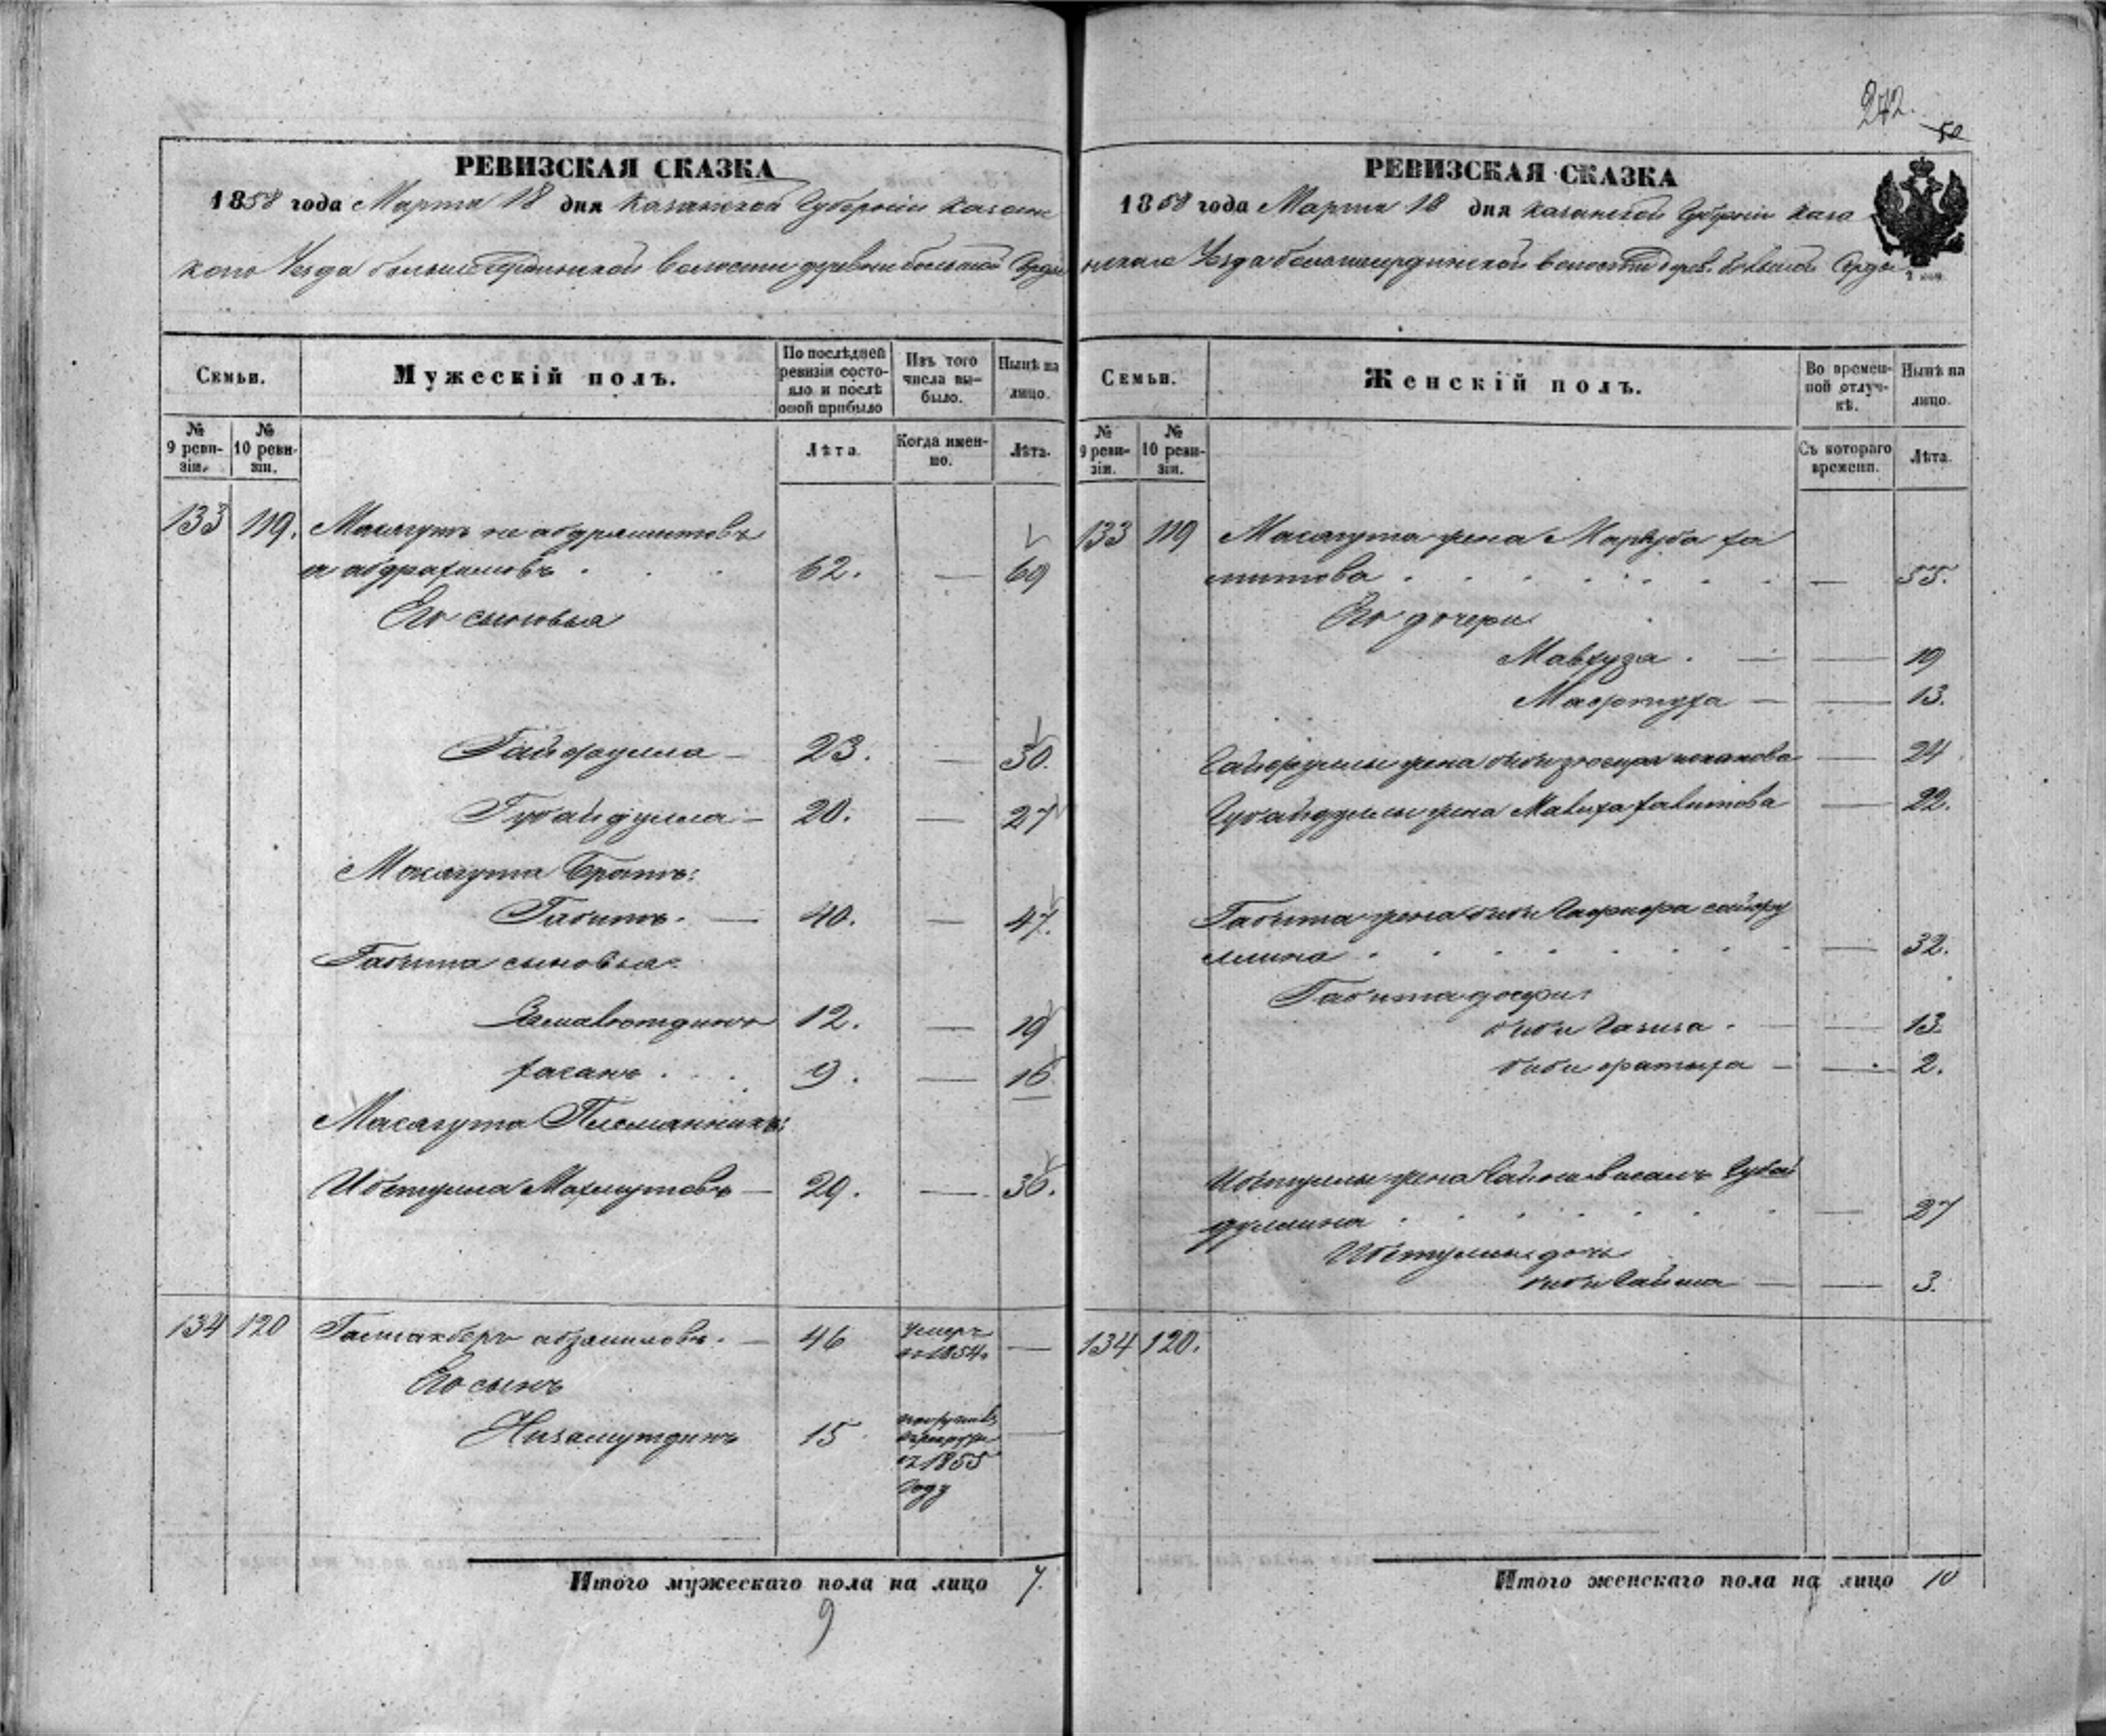 272.
50
РЕВИЗСКАЯ СКАЗКА
1858 года Марта 18 дня Казанской Губернии Казан
скаго Уезда большесердинской волости деревни большой Серды
Семьи.
Мужескій полъ.
По послѣдней ревизіи состояло и послѣ оной прибыло
Изъ того числа вы-было.
Нынѣ на лицо.
№ 9 реви-зіи.
№ 10 реви-зіи.
Лѣта.
Когда имен-но.
Лѣта.
133 119. Масагутъ не абдрашитовъ
а абдрахимовъ . . . 62. — 69
Его сыновья
Гайфулла — 23. — 30.
Губайдулла — 20. — 27
Масагута братъ:
Габитъ. — 40. — 47.
Габита сыновья:
Замалютдинъ 12. — 19
хасанъ . . . 9. — 16
Масагута Племянникъ:
Ибетулла Махмутовъ — 29. — 36.
134 120 абзялиловъ. — 46 умеръ въ 1854. —
Его сынъ
Низамутдинъ 15 въ 1855 году —
Итого мужескаго пола на лицо 7.
9
РЕВИЗСКАЯ СКАЗКА
1858 года Марта 18 дня Казанской Губернии Каза
нскаго Уезда большесердинской волости дерев. большой Серды
2 коп.
Семьи.
Женскій полъ.
Во времен-ной отлуч-кѣ.
Нынѣ на лицо.
№ 9 реви-зіи.
№ 10 реви-зіи.
Съ котораго времени.
Лѣта.
133 119 Масагута жена Мархуба ха
митова . . . . . . . — 55.
Его дочери
Мавхуза . — — 19
Масртуха — — 13.
Гайфуллы жена биби — 24
Губайдуллы жена Малиха халитова — 22.
Габита жена биби сайфу
ллина . . . . . . . — 32.
Габита дочери:
биби Газиза . — — 13.
биби фатыха — — 2.
Ибетуллы жена Губай
дуллина . . . . . . . — 27
Ибетуллы дочь
биби — — 3.
134 120.
Итого женскаго пола на лицо 10